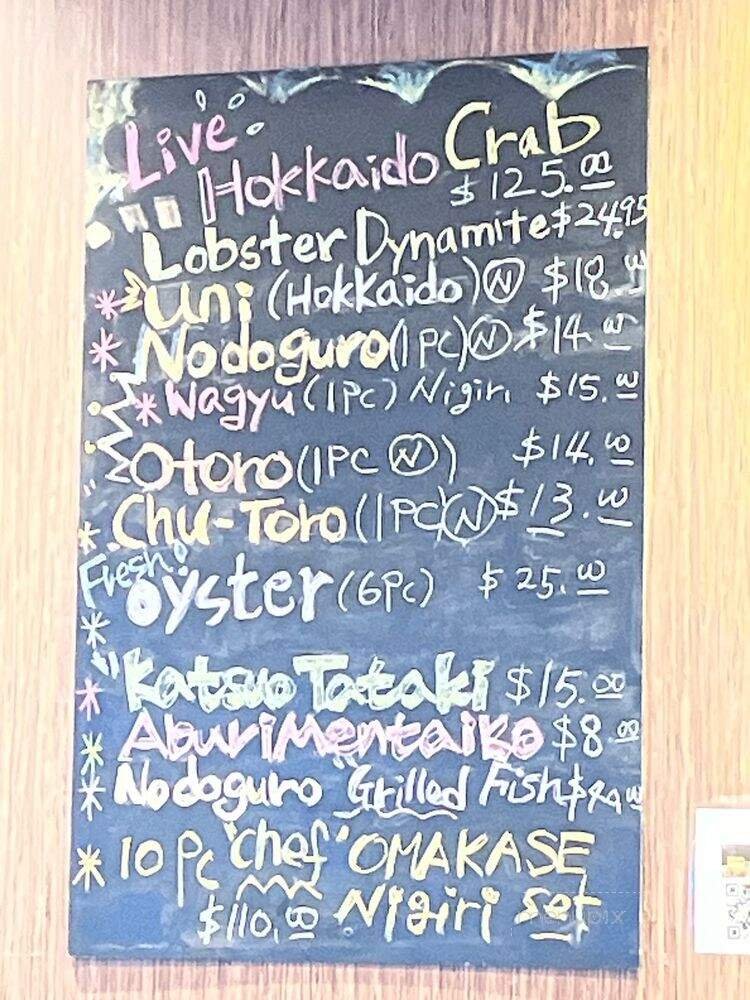 Live
Hokkaido Crab
$125.00
Lobster Dynamite $24.95
Uni (Hokkaido) N $18.00
Nodoguro (1PC) N $14.00
Wagyu (1PC) Nigiri $15.00
Otoro (1PC N) $14.00
Chu-Toro (1PC) N $13.00
Fresh!
Oyster (6PC) $25.00
Katsuo Tataki $15.00
Aburi Mentaiko $8.00
Nodoguro Grilled Fish
10 PC "chef" OMAKASE
$110.00 Nigiri set